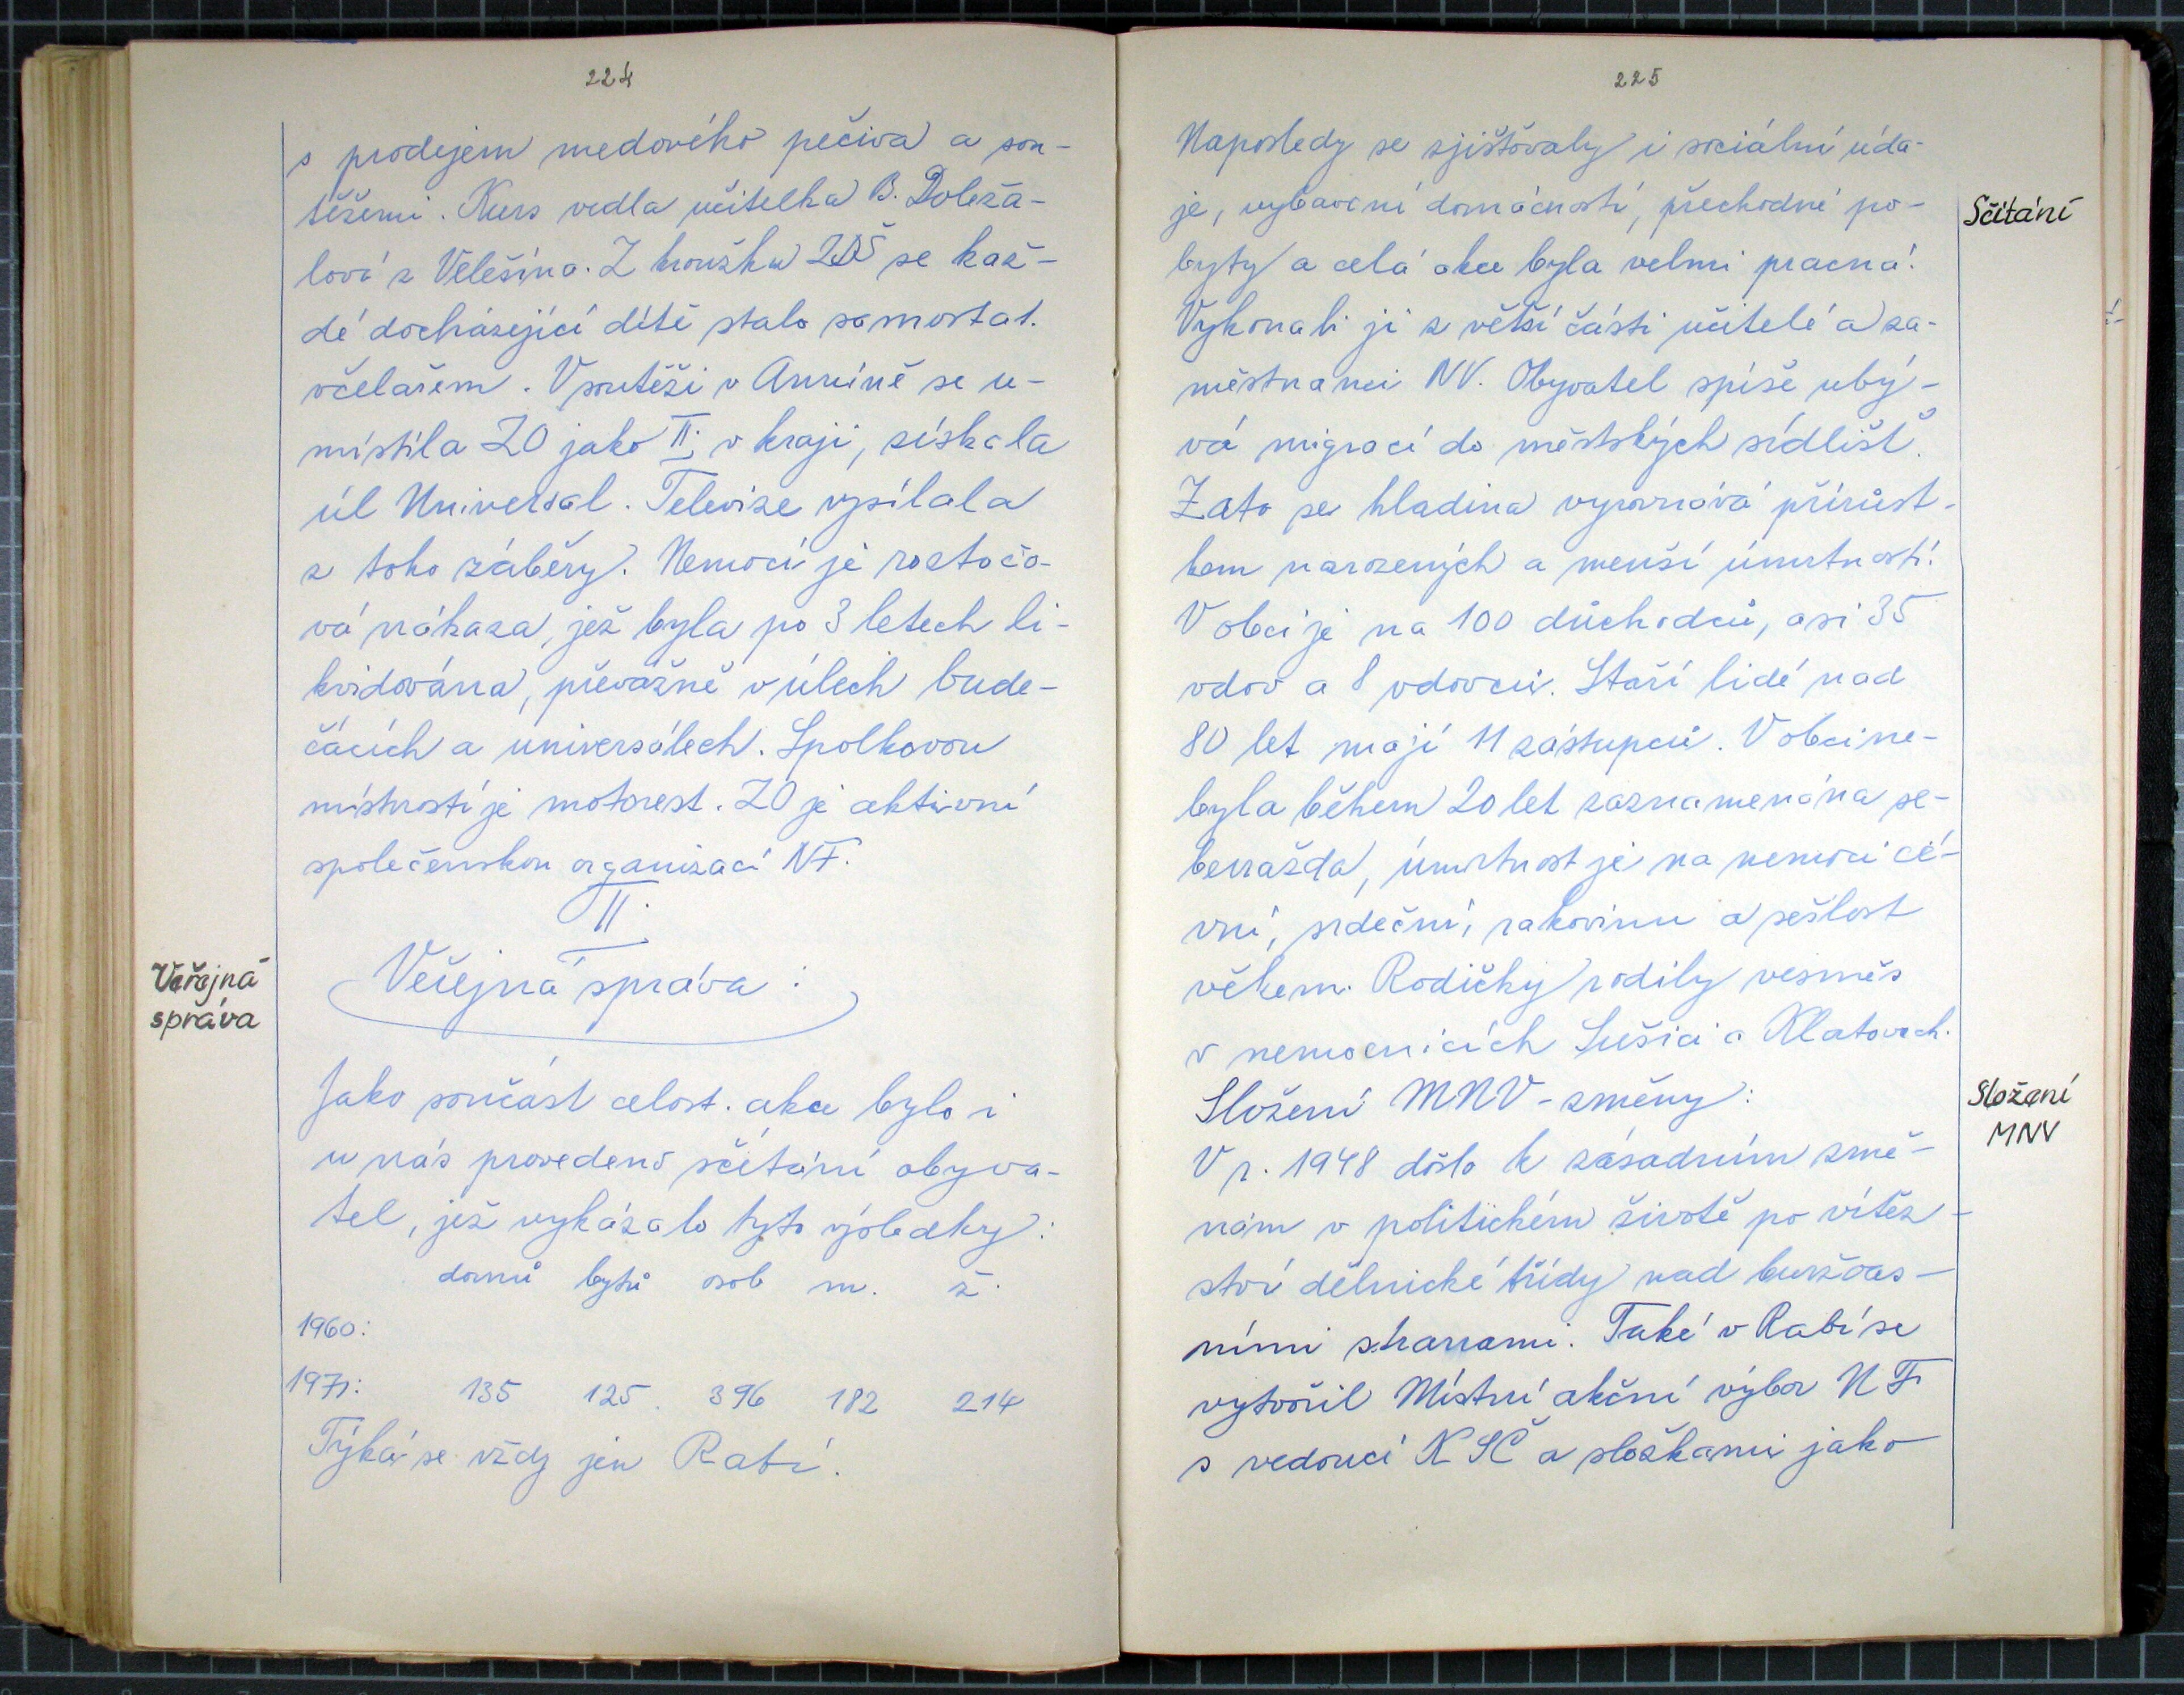 224
s prodejem medového pečiva a sou-
těžemi. Kurs vedla učitelka B. Doleža-
lová z Velešína. Z kroužku ZDŠ se kaž-
dé docházející dítě stalo samostat.
včelařem. V soutěži v Anníně se u-
místila ZO jako II. v kraji, získala
úl Universal. Televize vysílala
z toho záběry. Nemocí je roztočo-
vá nákaza, jež byla po 3 letech li-
kvidována, převážně v úlech bude-
čácích a universálech. Spolkovou
místností je motorest. ZO je aktivní
společenskou organizací NF.
II.
Veřejná
správa
Veřejná správa:
Jako součást celost. akce bylo i
u nás provedeno sčítání obyva-
tel, jež vykázalo tyto výsledky:
domů bytů osob m. ž.
1960:
1971: 135 125 396 182 214
Týká se vždy jen Rabí.
225
Naposledy se zjišťovaly i sociální úda-
je, vybavení domácností, přechodné po-
Sčítání
byty a celá akce byla velmi pracná.
Vykonali ji z větší části učitelé a za-
městnanci NV. Obyvatel spíše ubý-
vá migrací do městských sídlišť.
Zato se hladina vyrovnává přírůst-
kem narozených a menší úmrtností.
V obci je na 100 důchodců, asi 35
vdov a 8 vdovců. Staří lidé nad
80 let mají 11 zástupců. V obci ne-
byla během 20 let zaznamenána se-
bevražda, úmrtnost je na nemoci cé-
vní, srdeční, rakovinu a sešlost
věkem. Rodičky rodily vesměs
v nemocnicích Sušici a Klatovech.
Složení MNV - změny:
Složení
MNV
V r. 1948 došlo k zásadním změ-
nám v politickém životě po vítěz-
ství dělnické třídy nad buržoas-
ními stranami. Také v Rabí se
vytvořil Místní akční výbor NF
s vedoucí KSČ a složkami jako